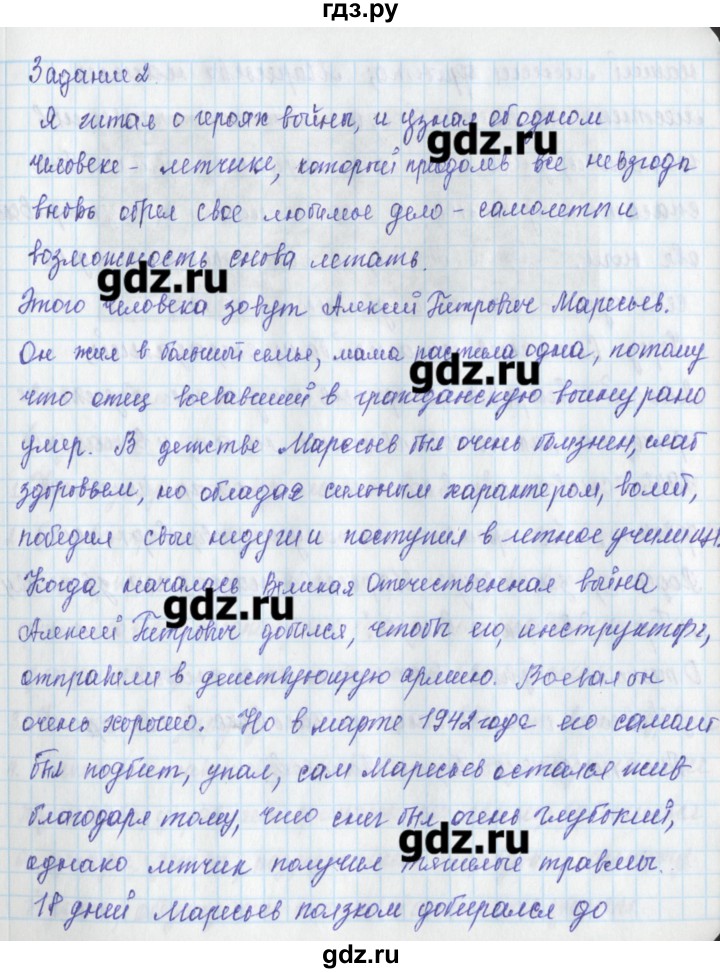 гдз.ру
Задание 2.
Я читал о героях войны, и узнал об одном
человеке - летчике, который преодолев все невзгоды
gdz.ru
вновь обрел свое любимое дело - самолеты и
возможность снова летать.
gdz.ru
Этого человека зовут Алексей Петрович Маресьев.
Он жил в большой семье, мама растила одна, потому
gdz.ru
что отец воевавший в гражданскую войну рано
умер. В детстве Маресьев был очень болезнен, слаб
здоровьем, но обладая сильным характером, волей,
победил свои недуги и поступил в летное училищ
Когда началась Великая Отечественная война
gdz.ru
Алексей Петрович добился, чтобы его, инструктора,
отправили в действующую армию. Воевал он
очень хорошо. Но в марте 1942 года его самолет
был подбит, упал, сам Маресьев остался жив
благодаря тому, что снег был очень глубокий,
gdz.ru
однако летчик получил тяжелые травмы.
18 дней Маресьев ползком добирался до
gdz.ru